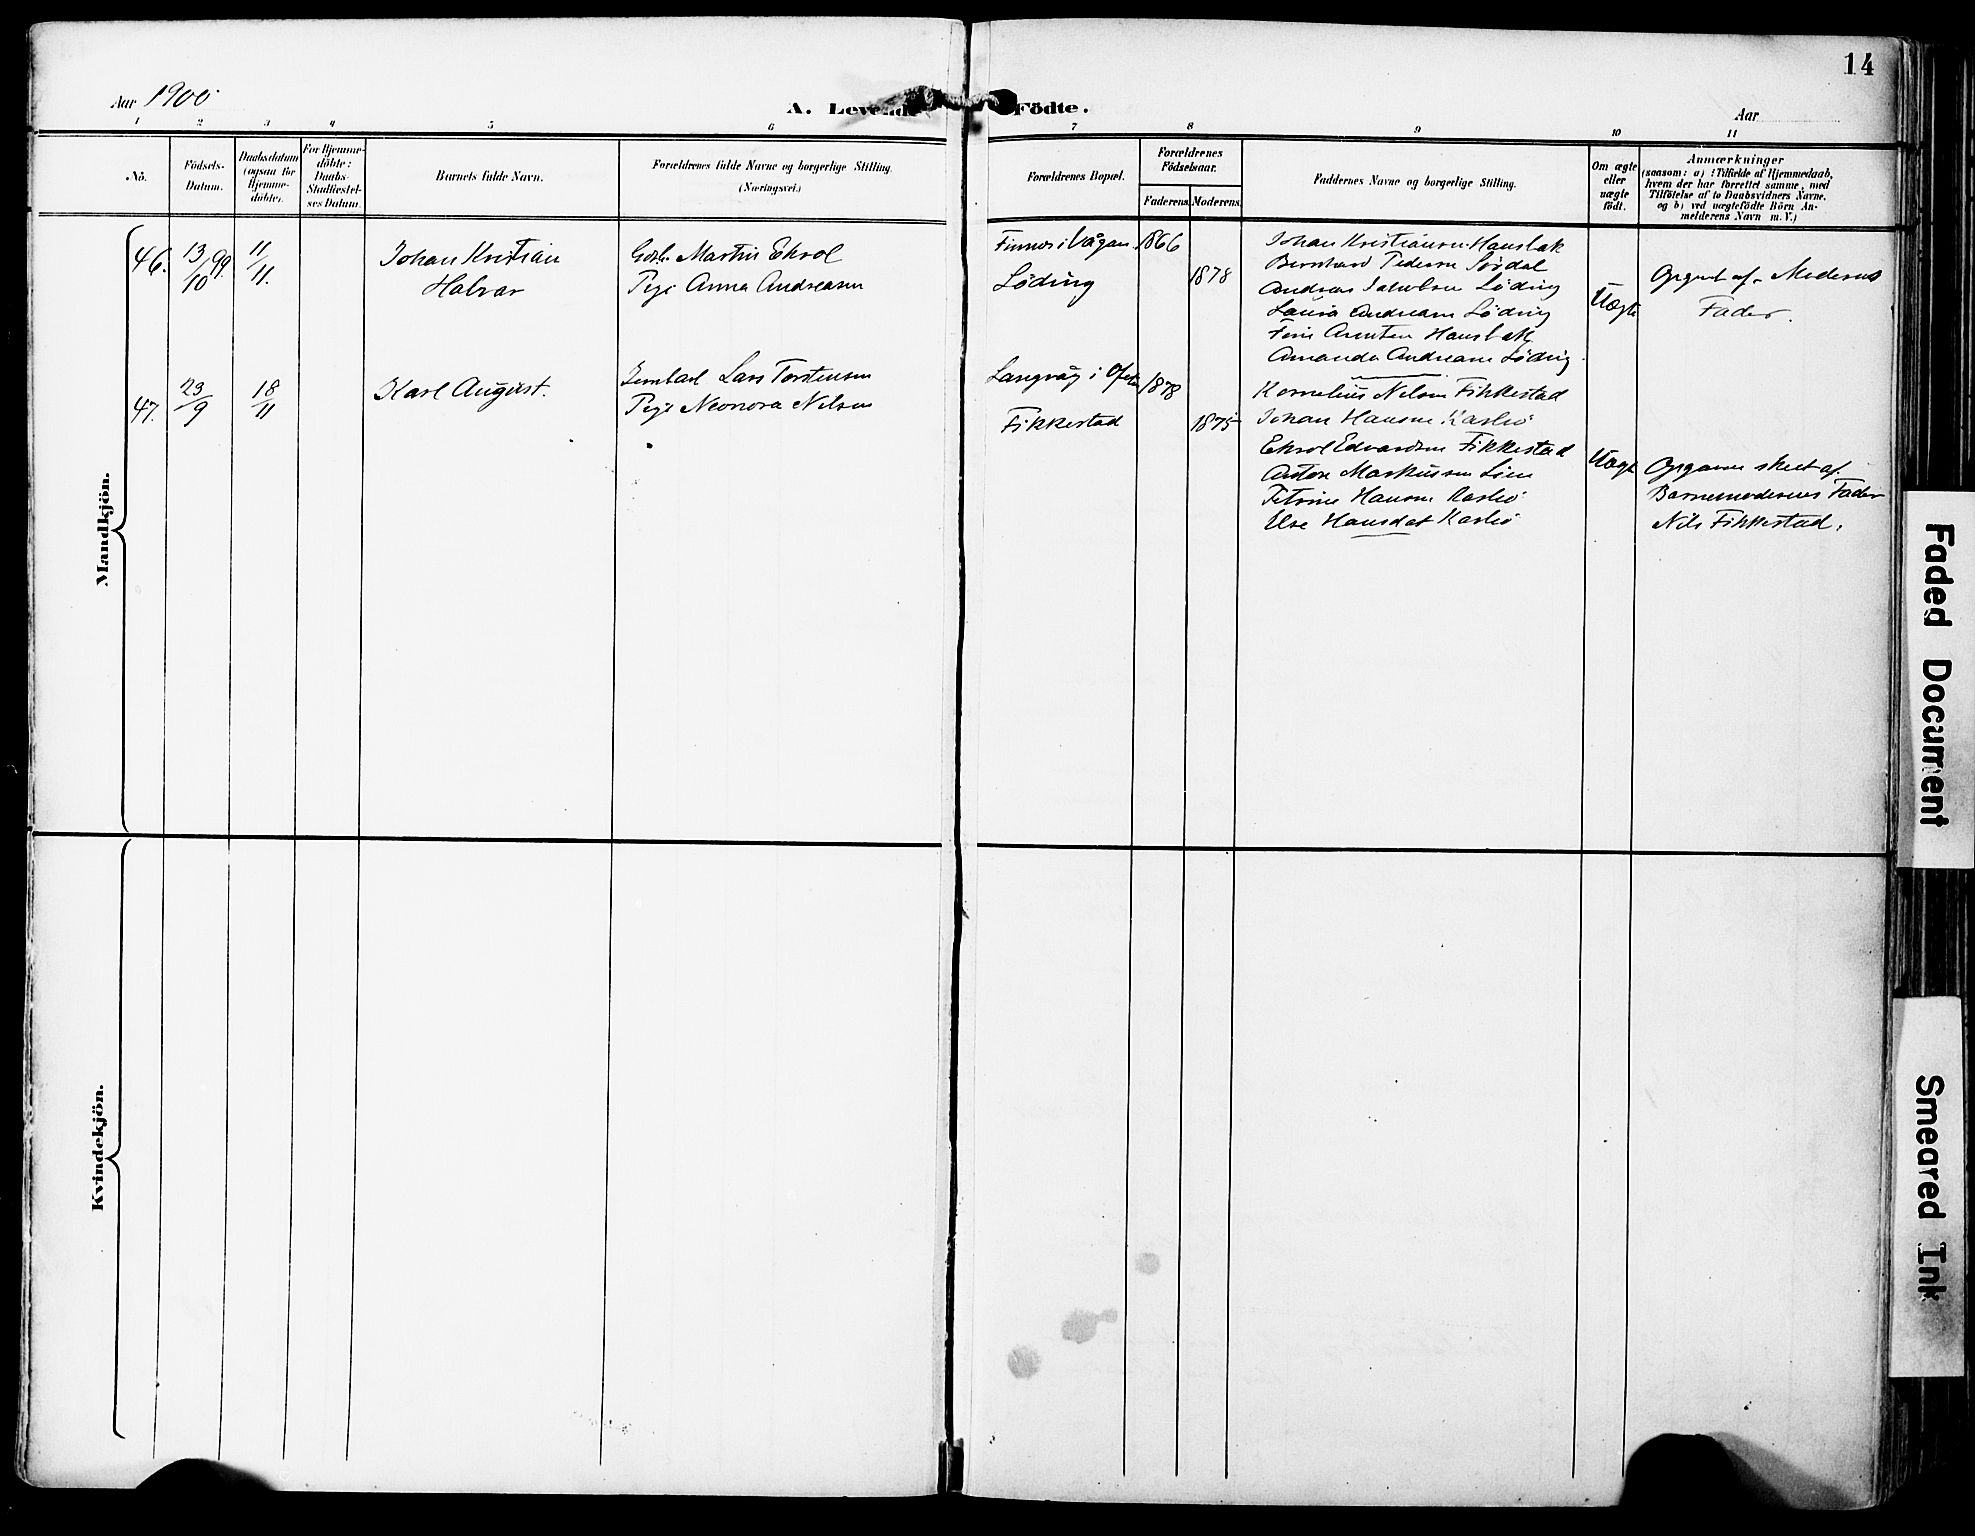 14
Aar 1900
A. Levende Födte.
Aar
1 2 3 4 5 6 7 8 9 10 11
No.
Födsels-
Datum.
Daabsdatum
(ogsaa for
Hjemme-
döbte).
For Hjemme-
döbte:
Daabs-
Stadfæstel-
ses Datum.
Barnets fulde Navn.
Forældrenes fulde Navne og borgerlige Stilling.
(Næringsvei.)
Forældrenes Bopæl.
Forældrenes
Födselsaar.
Faderens
Moderens
Faddernes Navne og borgerlige Stilling.
Om ægte
eller
uægte
födt.
Anmærkninger
(saasom: a) i Tilfælde af Hjemmedaab,
hvem der har forrettet samme, med
Tilföielse af to Daabsvidners Navne,
og b) ved uægtefödte Börn An-
melderens Navn m. V.)
Mandkjön.
46.
13/10 99.
11/11.
Johan Kristian
Halvar
Martin Ekrol
Pige Anna Andreasen
Finnes i Vågan
Löding
1866
1878
Johan Kristiansen Hansbak
Bernhard Pedersen Sördal
Andreas Jakobsen Löding
Laura Andreasen Löding
Arntsen Hansbak
Amanda Andreasen Löding
Uægte
Opgivet af Moderens
Fader.
47.
23/9
18/11
Karl August.
Lars Torstensen
Pige Neonora Nilsen
Langvåg i Ofoten
Fikkestad
1878
1875
Kornelius Nilsen Fikkestad
Johan Hansen Karsleö
Ekrol Edvardsen Fikkestad
Anton Markussen
Petrine Hansen
Else Hansdat
Uægte
Opgaven skeet af
Barnemoderens Fader
Nils Fikkestad.
Kvindekjön.
Faded Document
Smeared Ink